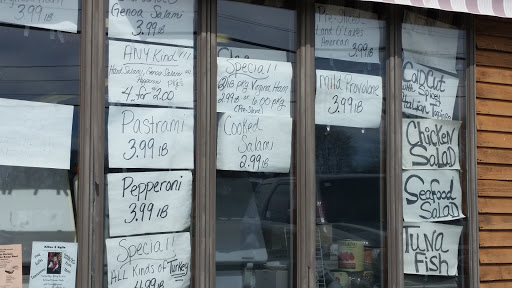 3.99 LB
Genoa Salami
3.99 LB
ANY Kind
Hard Salami, Genoa Salami
Pepperoni
pkgs
4 for $2.00
Pastrami
3.99 LB
Pepperoni
3.99 LB
Special!
ALL Kinds of Turkey
4.99 LB
Special!
Virginia Ham
2.99 LB
Cooked
Salami
2.99 LB
Pre-Sliced
Land O Lakes
American
3.99 LB
Mild Provolone
3.99 LB
Cold Cut
Italian
Chicken
Salad
Seafood
Salad
Tuna
Fish